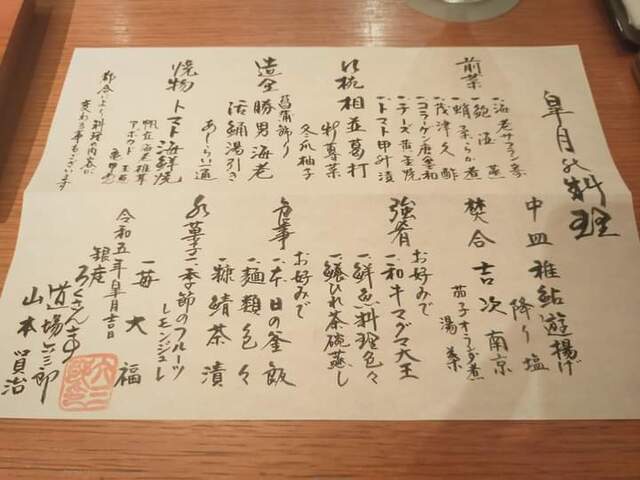 皐月の料理
前菜
一、海老サフラン
一、鮑酒蒸
一、蛸柔らか煮
一、茂津久酢
一、コラーゲン唐墨和
一、チーズ黄金焼
一、トマト甲州漬
相並葛打
蓴菜
冬瓜 柚子
造里 勝男 海老
菖蒲飾り
活鯒湯引き
あしらい一通
焼物 トマト海鮮焼
帆立 海老 椎茸
アボカド 玉葱
都合により料理の内容に
変わる事もございます
中皿 稚鮎遊揚げ
降り塩
焚合 吉次南京
茄子オランダ煮
湯葉
強肴 お好みで
一、和牛マグマ大王
一、鮮魚料理色々
一、鱶ひれ茶碗蒸し
食事 お好みで
一、本日の釜飯
一、麺類色々
一、糠鯖茶漬
水菓子 一、季節のフルーツ
レモンジュレ
一、苺大福
令和五年皐月吉日
銀座
ろくさん亭
道場六三郎
山本賢治